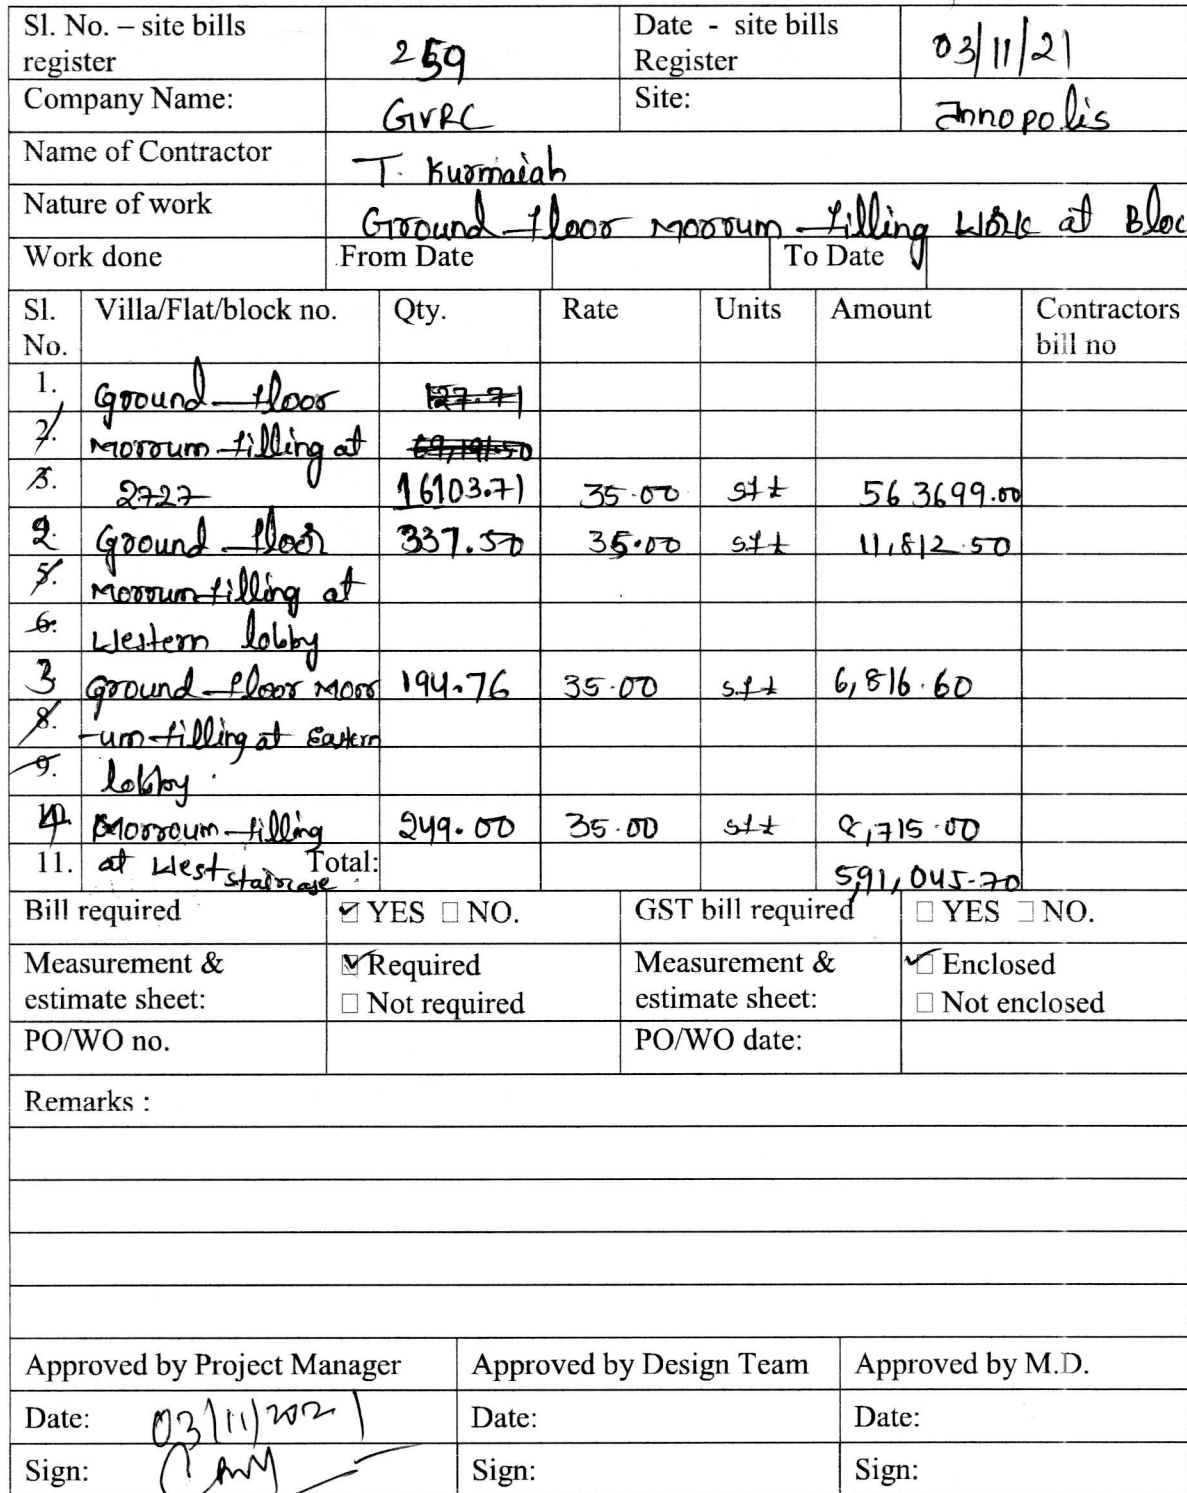 Sl. No. – site bills register 259 Date - site bills Register 03/11/21
Company Name: GVRC Site: Innopolis
Name of Contractor T. Kurmaiah
Nature of work Ground floor morrum filling work at Bloc
Work done From Date To Date
Sl. No. Villa/Flat/block no. Qty. Rate Units Amount Contractors bill no
1. Ground floor 127.71
2. morrum filling at 69,191.50
3. 2727 16103.71 35.00 sft 563699.00
2. Ground floor 337.50 35.00 sft 11,812.50
5. morrum filling at
6. Western lobby
3 Ground floor morr 194.76 35.00 sft 6,816.60
8. -um filling at Eastern
9. lobby.
4 Morroum filling 249.00 35.00 sft 8,715.00
11. at West staircase Total: 591,045.70
Bill required ☑ YES □ NO. GST bill required □ YES □ NO.
Measurement & estimate sheet: ☑ Required Measurement & estimate sheet: ☑ Enclosed
□ Not required □ Not enclosed
PO/WO no. PO/WO date:
Remarks :
Approved by Project Manager Approved by Design Team Approved by M.D.
Date: 03/11/2021 Date: Date:
Sign: Sign: Sign: